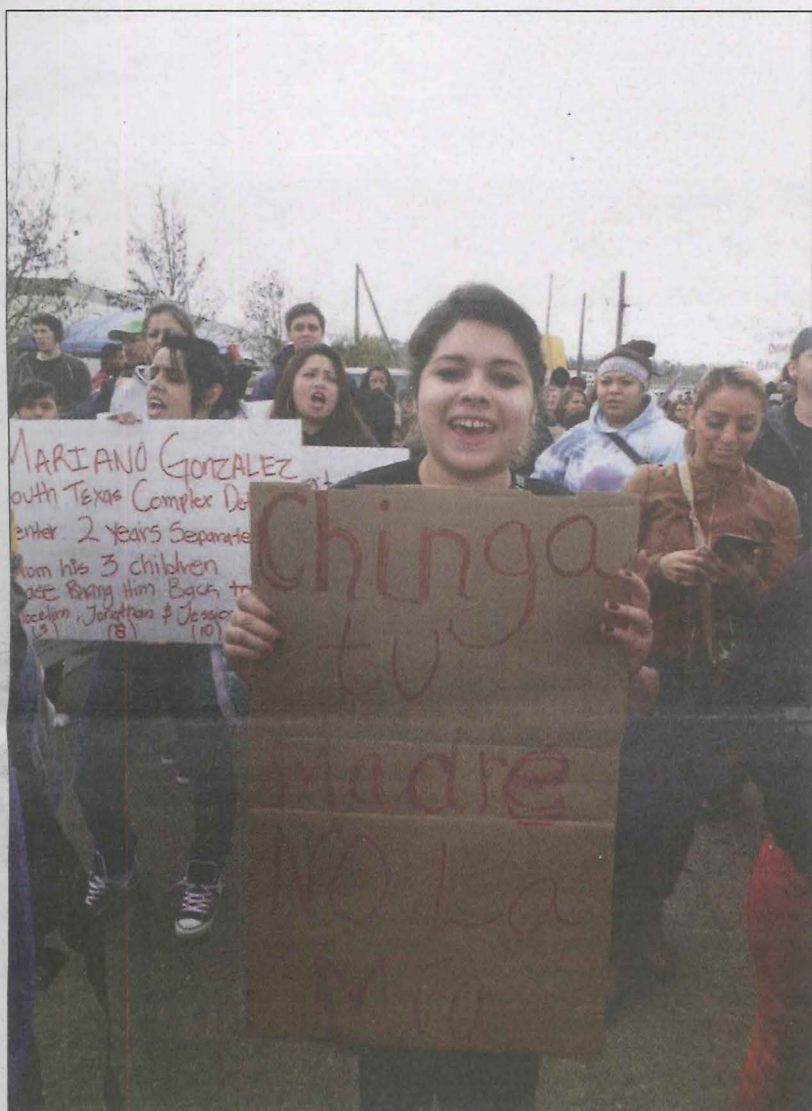 MARIANO GONZALEZ
outh Texas Complex De
enter. 2 years Separate
rom his 3 children
ase Bring Him Back to
ocelinn, Jonathan & Jessic
(8) (10)
Chinga
tu
Madre
NO La
Mia